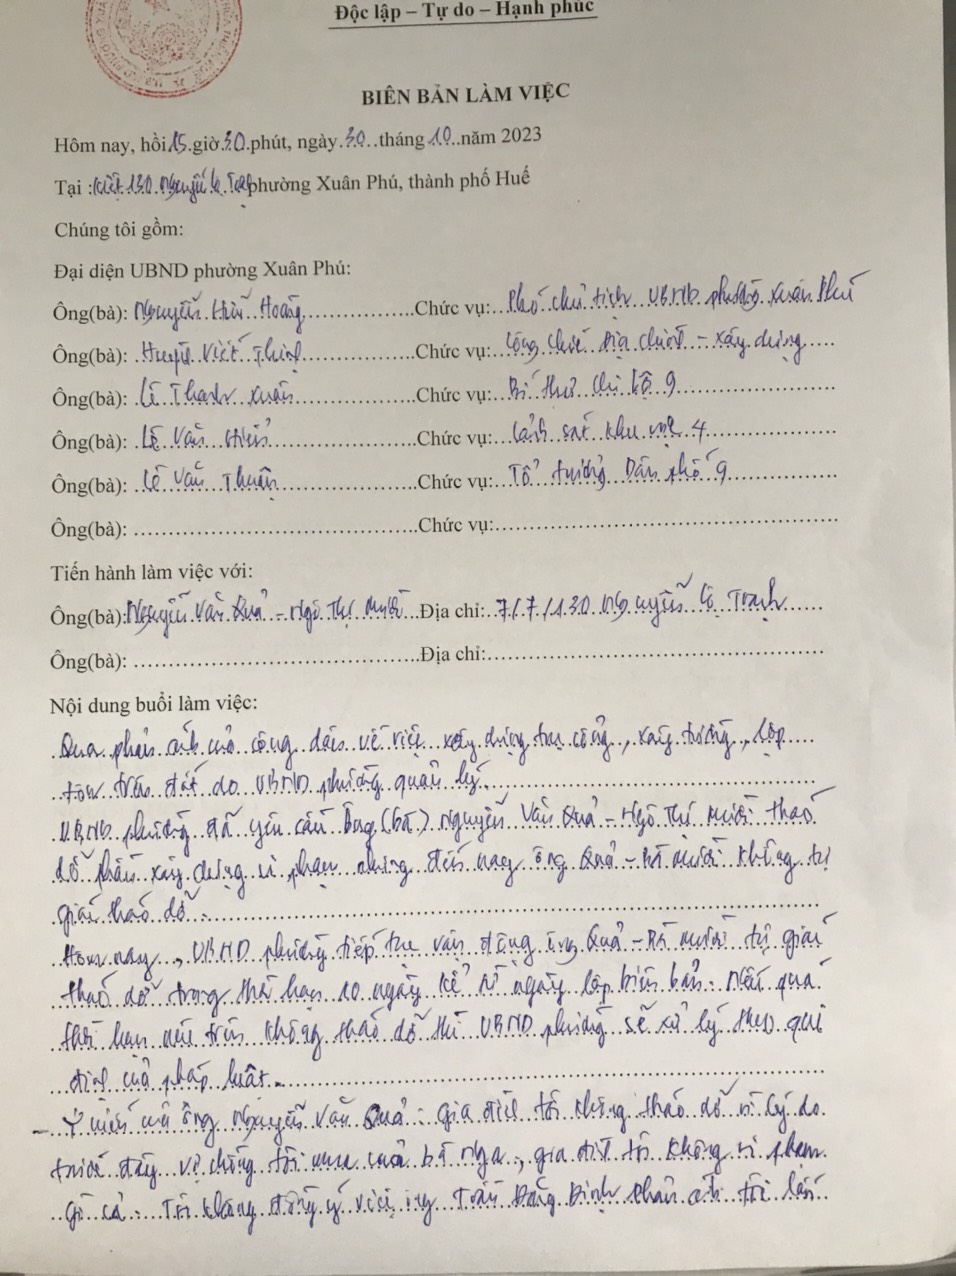 Độc lập – Tự do – Hạnh phúc
BIÊN BẢN LÀM VIỆC
Hôm nay, hồi 15 giờ 30 phút, ngày 30 tháng 10 năm 2023
Tại : kiệt 130 Nguyễn Lộ Trạch phường Xuân Phú, thành phố Huế
Chúng tôi gồm:
Đại diện UBND phường Xuân Phú:
Ông(bà): Nguyễn Hữu Hoàng Chức vụ: Phó chủ tịch UBND phường Xuân Phú
Ông(bà): Huỳnh Viết Thịnh Chức vụ: Công chức Địa chính - xây dựng
Ông(bà): Lê Thanh Xuân Chức vụ: Bí thư chi bộ 9
Ông(bà): Lê Văn Chức vụ: Cảnh sát khu vực 4
Ông(bà): Lê Văn Thuận Chức vụ: Tổ trưởng Dân phố 9
Ông(bà): Chức vụ:
Tiến hành làm việc với:
Ông(bà): Nguyễn Văn Quả - Ngô Thị Mười Địa chỉ: 7/7/130 Nguyễn Lộ Trạch
Ông(bà): Địa chỉ:
Nội dung buổi làm việc:
Qua phản ánh của công dân về việc xây dựng trụ cổng, xây tường, lợp
tôn trên đất do UBND phường quản lý.
UBND phường đã yêu cầu ông (bà) Nguyễn Văn Quả - Ngô Thị Mười tháo
dỡ phần xây dựng vi phạm nhưng đến nay ông Quả - Bà Mười không tự
giác tháo dỡ.
Hôm nay, UBND phường tiếp tục vận động ông Quả - Bà Mười tự giác
tháo dỡ trong thời hạn 10 ngày kể từ ngày lập biên bản. Nếu quá
thời hạn nêu trên không tháo dỡ thì UBND phường sẽ xử lý theo qui
định của pháp luật.
- Ý kiến của ông Nguyễn Văn Quả: gia đình tôi không tháo dỡ vì lý do
trước đây vợ chồng tôi mua của bà Nga, gia đình tôi không vi phạm
gì cả. Tôi không đồng ý việc ông Trần Đăng Bình phản ánh tôi lấn